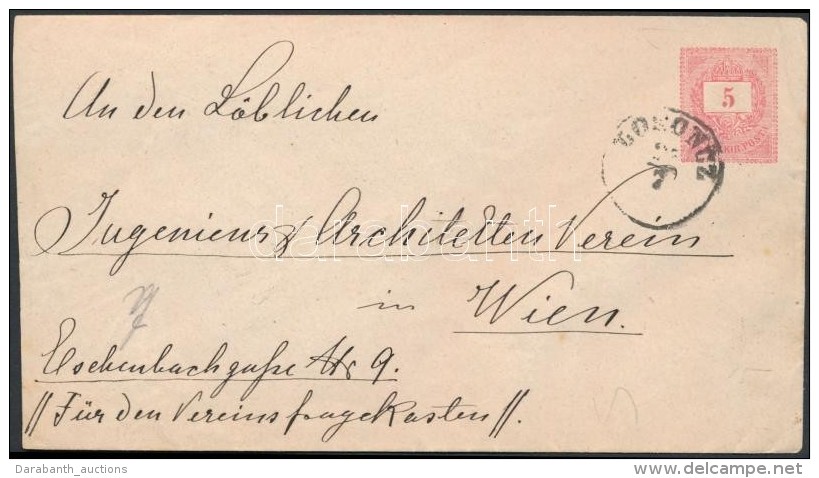 An den Löblichen
5
KIR. POSTA
Ingenieur & Architekten Verein
darabanth
in
Wien.
Eschenbachgaße Nr 9.
// Für den Vereinsfragekasten //.
Darabanth_auctions
delcampe.net